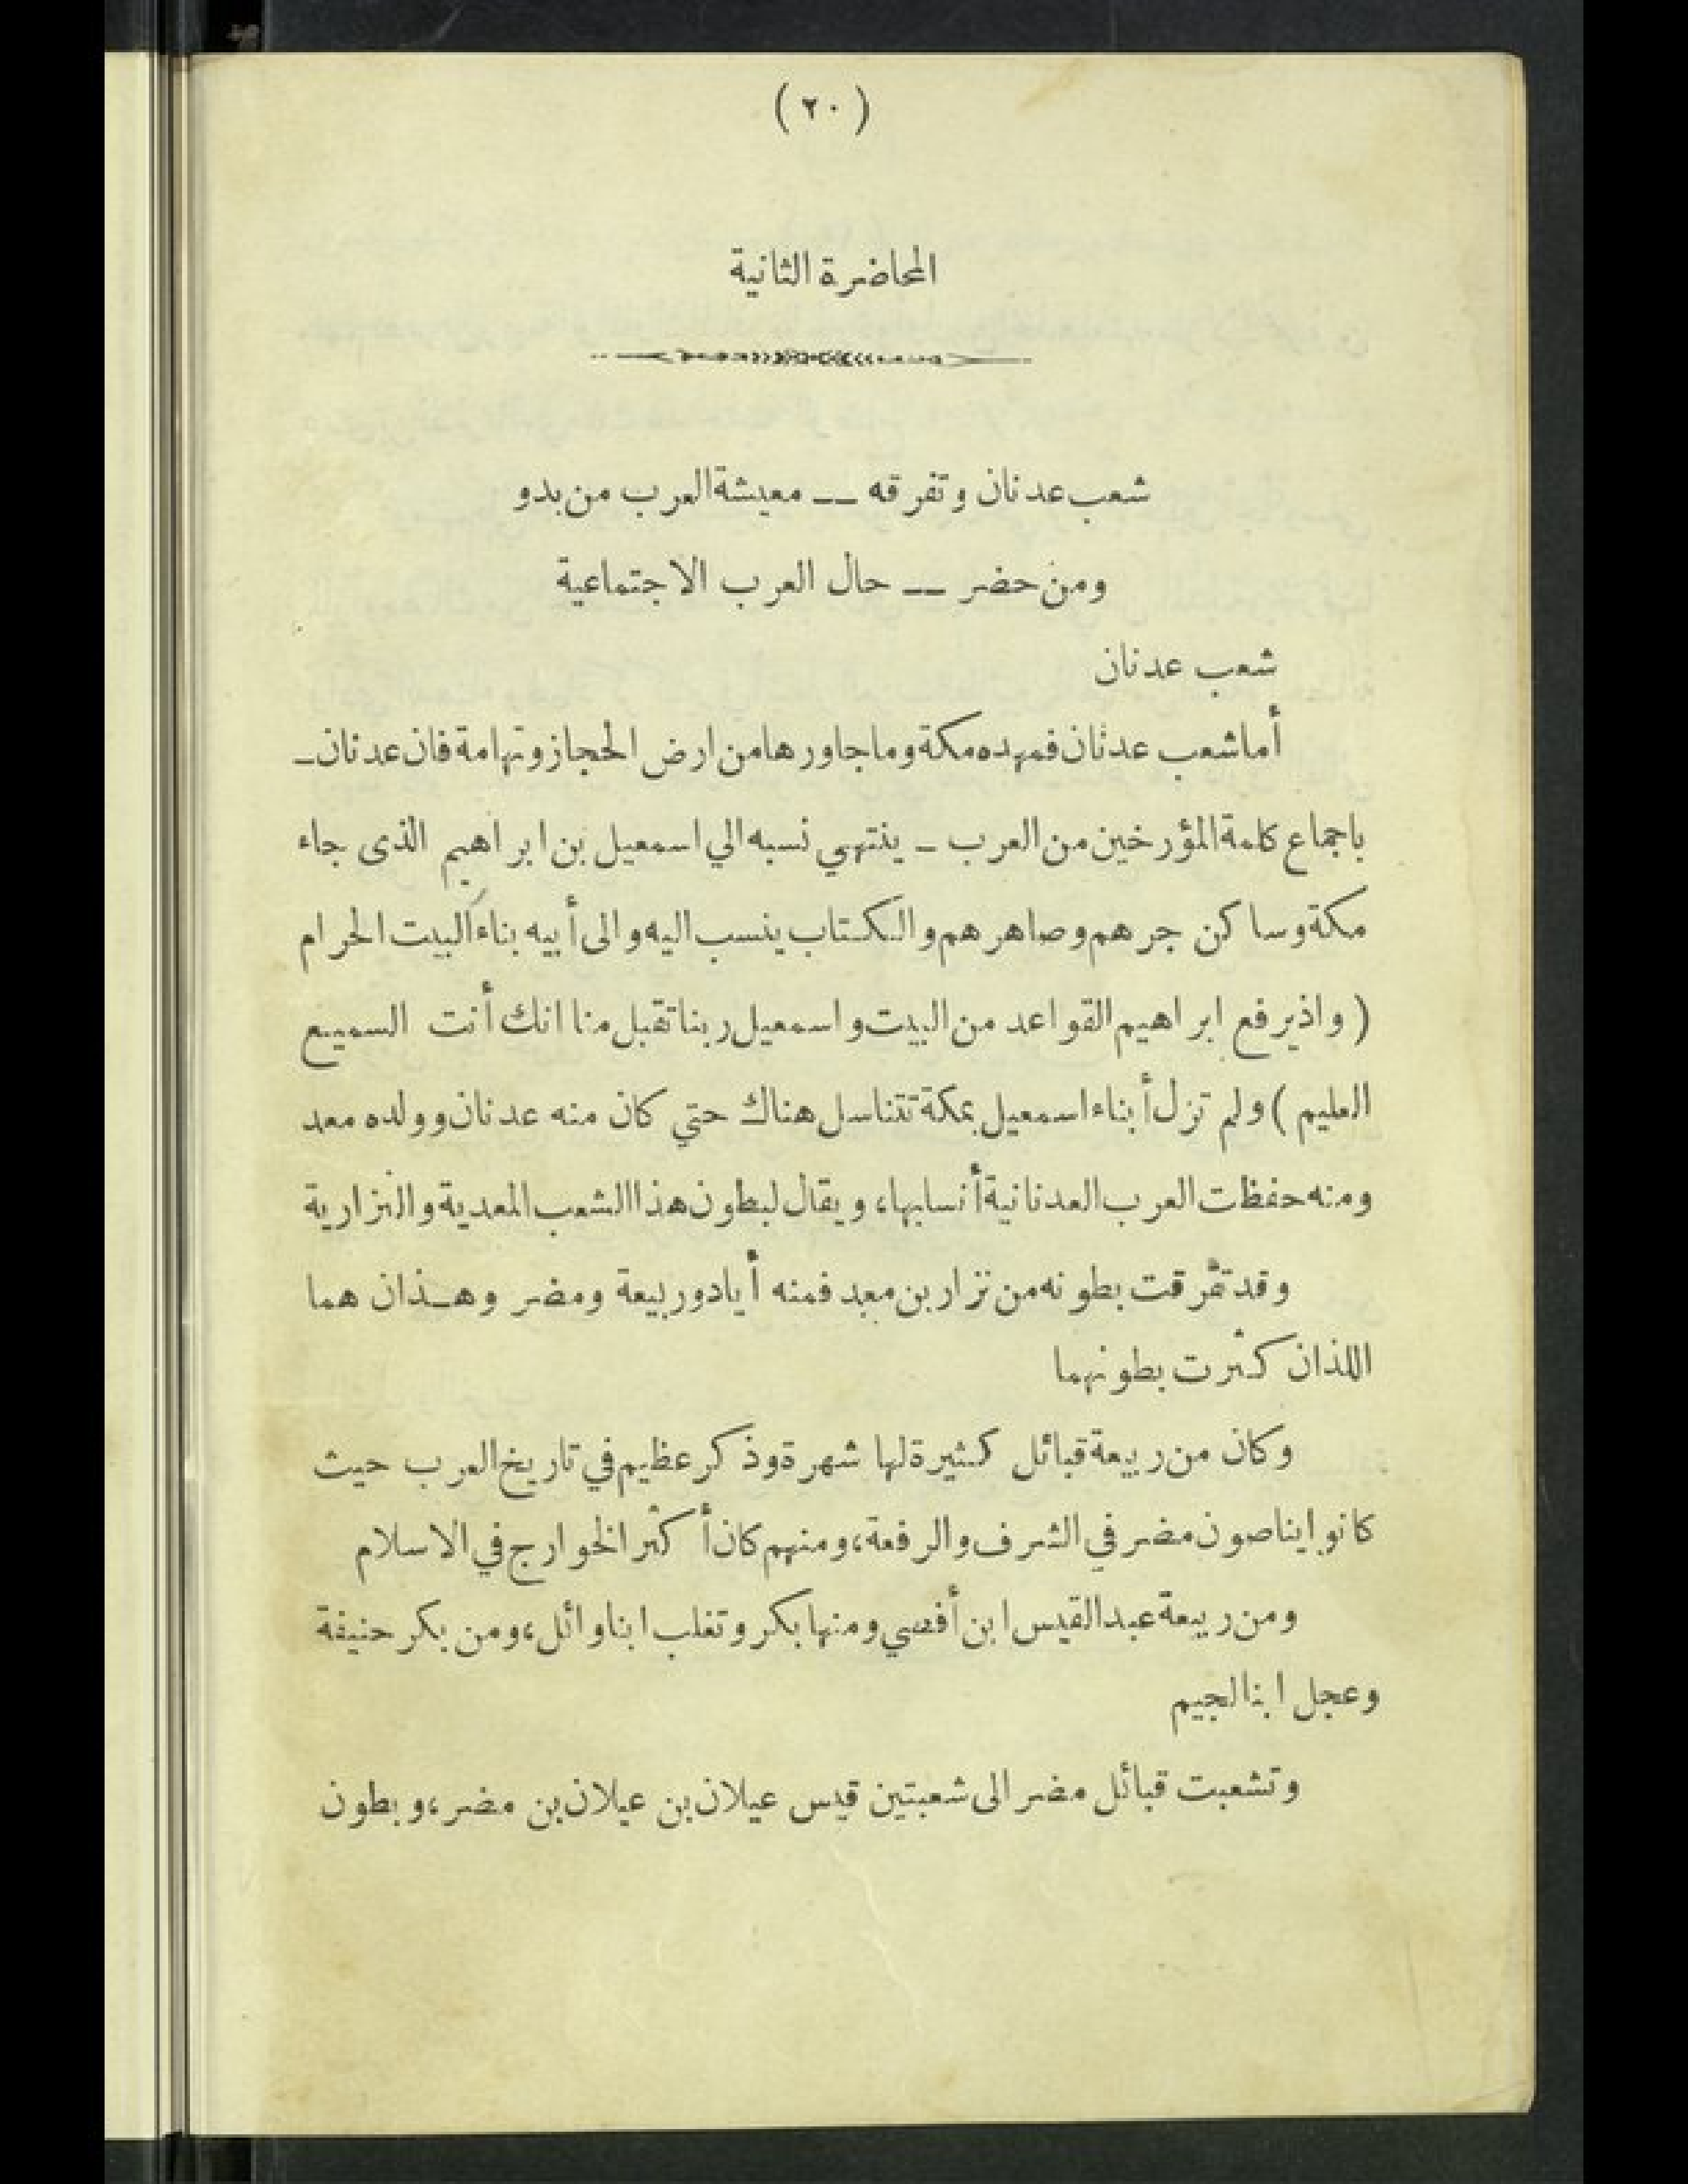 ( ٢٠ )
المحاضرة الثانية
شعب عدنان وتفرقه — معيشة العرب من بدو
ومن حضر — حال العرب الاجتماعية
شعب عدنان
أما شعب عدنان فمهده مكة وما جاورها من ارض الحجاز وتهامة فان عدنان ـ
باجماع كلمة المؤرخين من العرب ـ ينتهي نسبه الي اسمعيل بن ابراهيم الذى جاء
مكة وساكن جرهم وصاهرهم والكتاب ينسب اليه والى أبيه بناء البيت الحرام
( واذ يرفع ابراهيم القواعد من البيت واسمعيل ربنا تقبل منا انك أنت السميع
العليم ) ولم تزل أبناء اسمعيل بمكة تتناسل هناك حتي كان منه عدنان وولده معد
ومنه حفظت العرب العدنانية أنسابها، ويقال لبطون هذا الشعب المعدية والنزارية
وقد تفرقت بطونه من نزار بن معد فمنه أياد وربيعة ومضر وهذان هما
اللذان كثرت بطونهما
وكان من ربيعة قبائل كثيرة لها شهرة وذكر عظيم في تاريخ العرب حيث
كانوا يناصون مضر في الشرف والرفعة، ومنهم كان أكثر الخوارج في الاسلام
ومن ربيعة عبد القيس ابن أفصي ومنها بكر وتغلب ابنا وائل، ومن بكر حنيفة
وعجل ابنا لجيم
وتشعبت قبائل مضر الى شعبتين قيس عيلان بن عيلان بن مضر، وبطون